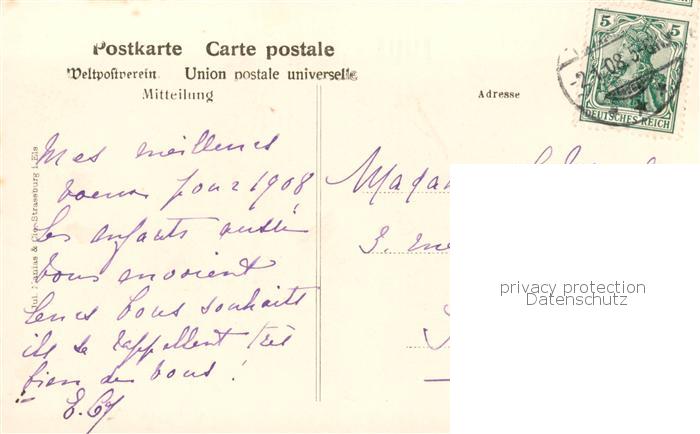 Postkarte Carte postale
Weltpostverein Union postale universelle
Mitteilung
Adresse
5 5
DEUTSCHES REICH
08
Jul. Manias & Cie. Strassburg i. Els.
Mes meilleurs
voeux pour 1908
Les enfants aussi
vous envoient
leurs bons souhaits
ils se rappellent très
bien de vous !
E. G
Madam
3. rue
privacy protection
Datenschutz